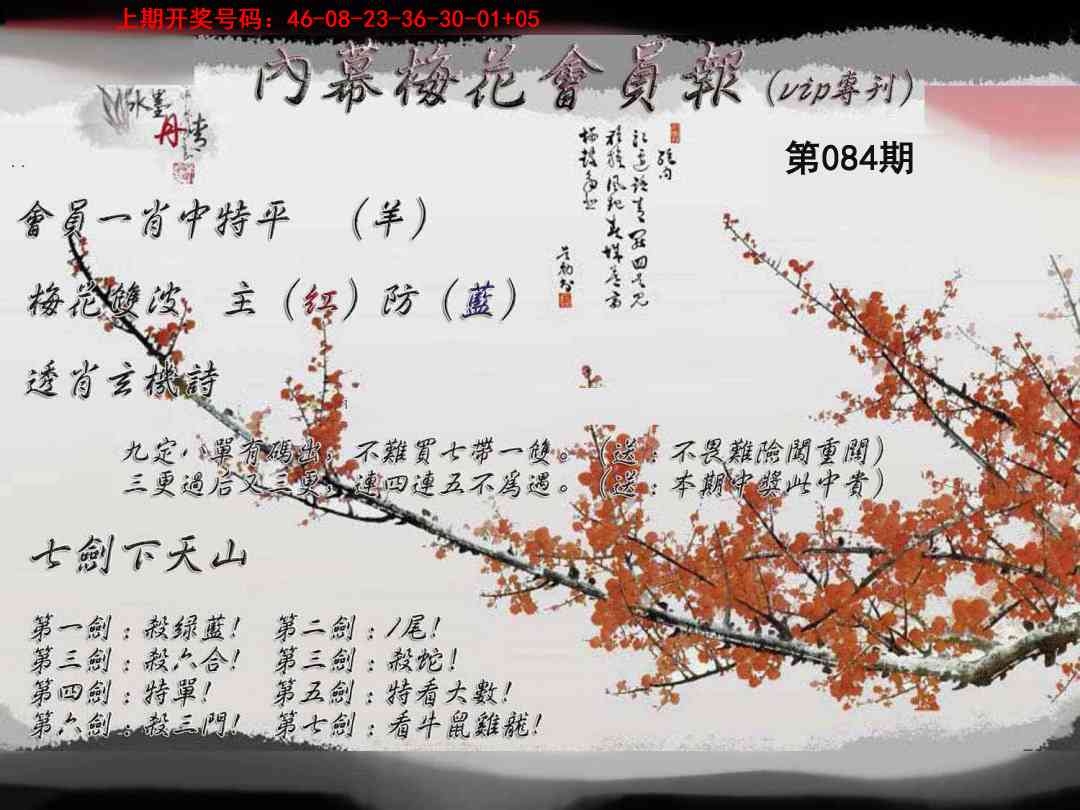 上期开奖号码：46-08-23-36-30-01+05
內幕梅花會員報（vip專刊）
水墨
丹青
第084期
會員一肖中特平 （羊）
梅花雙波 主（红）防（藍）
透肖玄機詩
九定，單有碼出，不難買七帶一雙。（送：不畏難險闖重關）
三更過后又三更，連四連五不爲過。（送：本期中獎此中貴）
七劍下天山
第一劍：殺绿藍！ 第二劍：1尾！
第三劍：殺六合！ 第三劍：殺蛇！
第四劍：特單！ 第五劍：特看大數！
第六劍：殺三門！ 第七劍：看牛鼠雞龍！